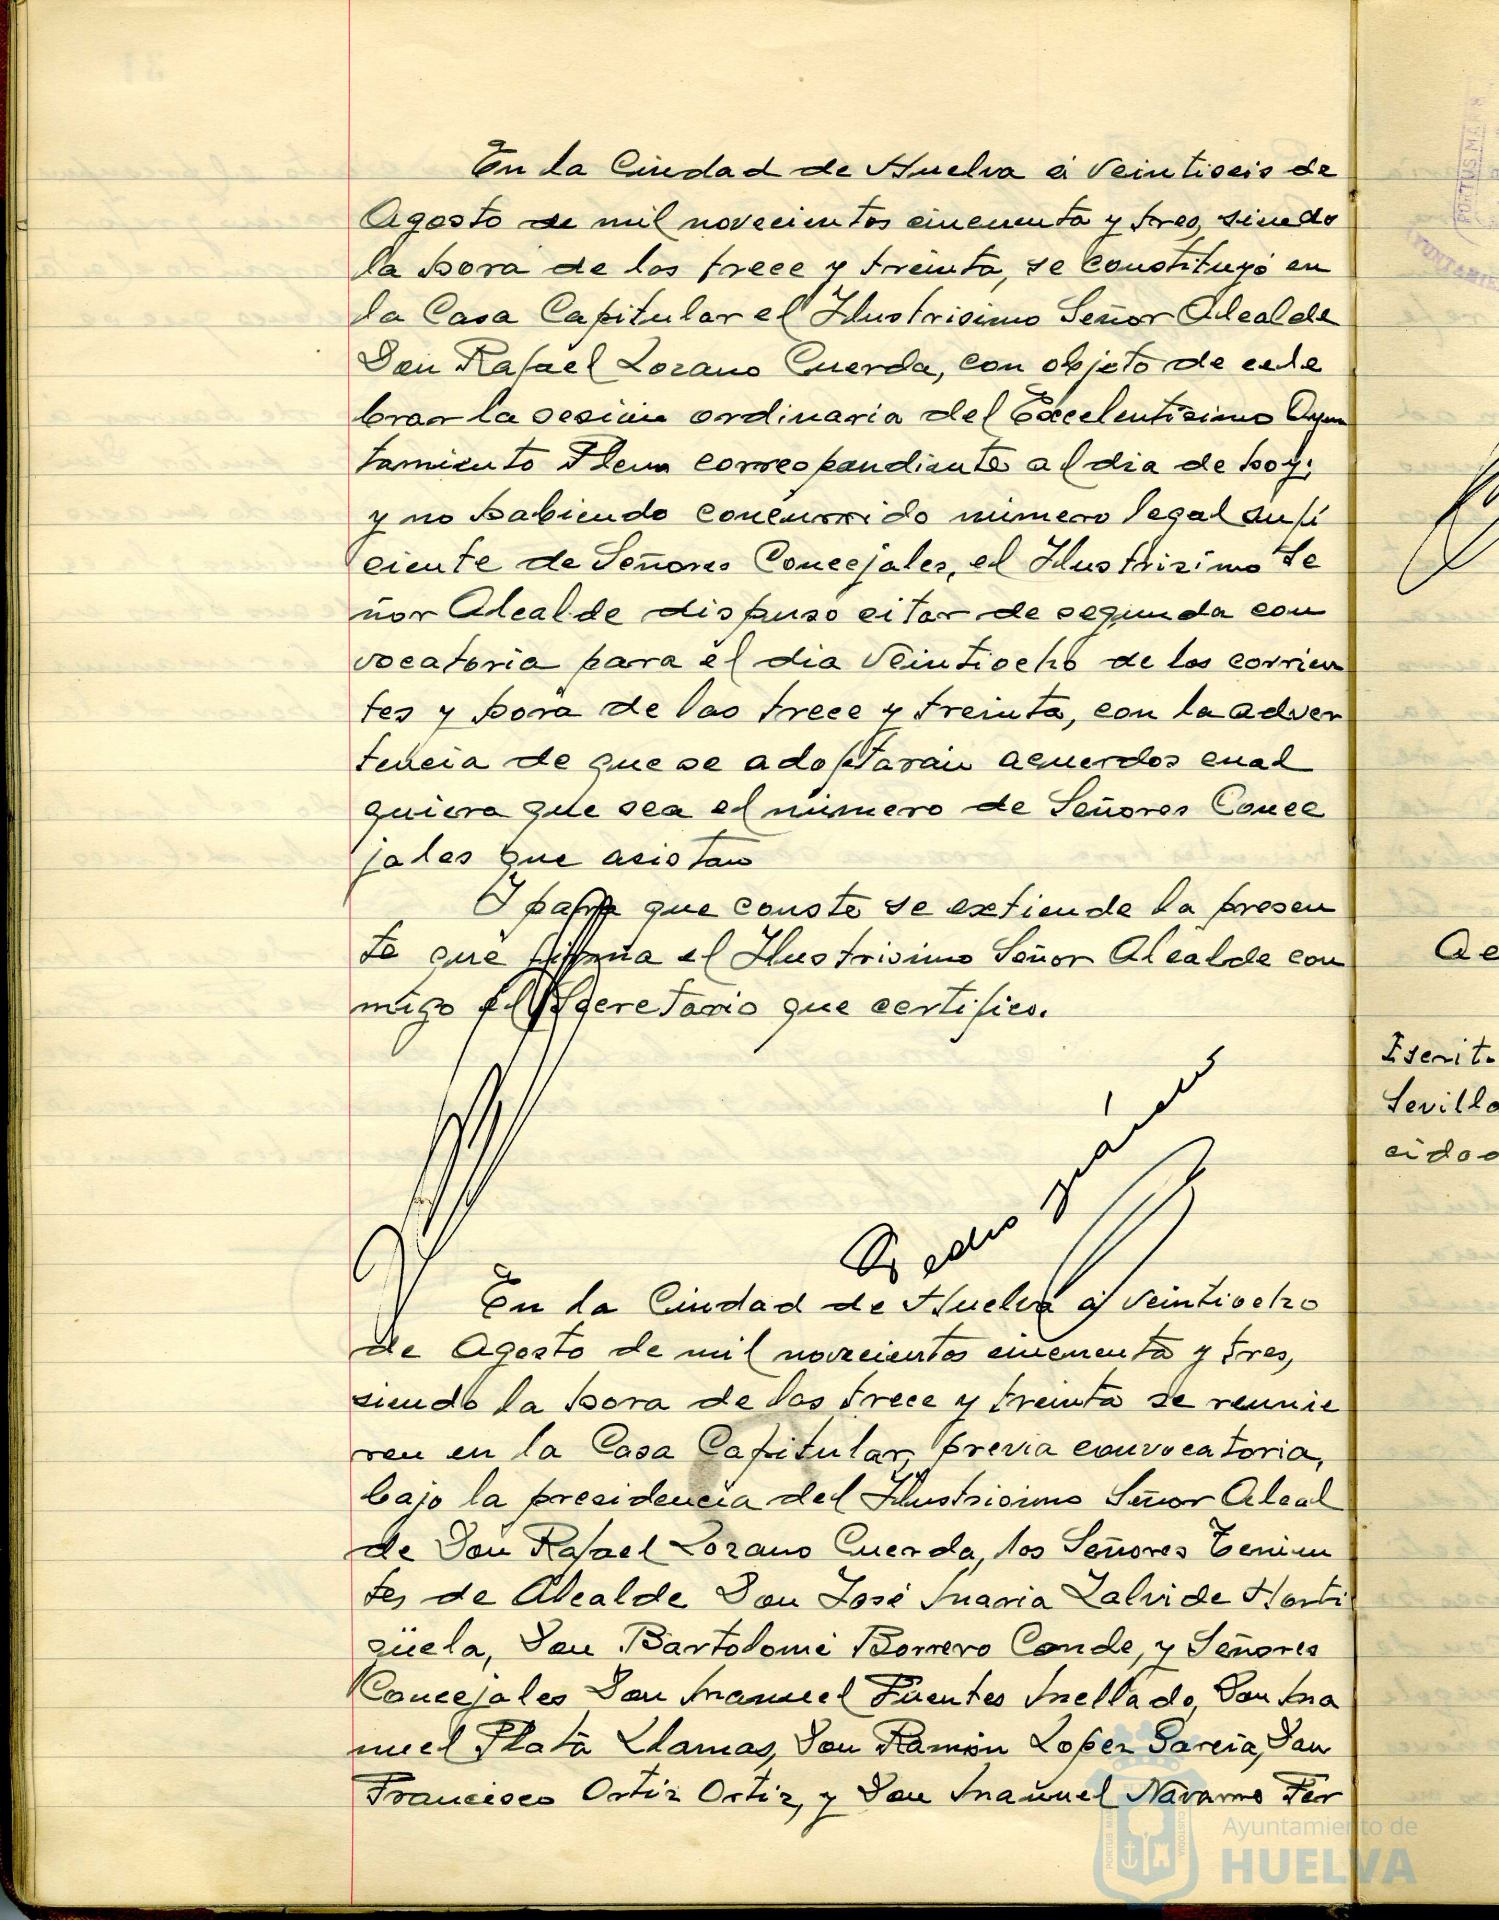 En la Ciudad de Huelva á veintiseis de
Agosto de mil novecientos cincuenta y tres, siendo
la hora de las trece y treinta, se constituyó en
la Casa Capitular el Ilustrisimo Señor Alcalde
Don Rafael Lozano Cuerda, con objeto de cele
brar la sesión ordinaria del Excelentisimo Ayun
tamiento Pleno correspondiente al dia de hoy;
y no habiendo concurrido número legal sufi
ciente de Señores Concejales, el Ilustrisimo Se
ñor Alcalde dispuso citar de segunda con
vocatoria para el dia veintiocho de los corrien
tes y hora de las trece y treinta, con la adver
tencia de que se adoptarán acuerdos cual
quiera que sea el número de Señores Conce
jales que asistan
Y para que conste se extiende la presen
te que firma el Ilustrisimo Señor Alcalde con
migo el Secretario que certifico.
Pedro
En la Ciudad de Huelva á veintiocho
de Agosto de mil novecientos cincuenta y tres,
siendo la hora de las trece y treinta se reunie
ron en la Casa Capitular, previa convocatoria,
bajo la presidencia del Ilustrisimo Señor Alcal
de Don Rafael Lozano Cuerda, los Señores Tenien
tes de Alcalde Don José Maria Zalvide Horti
güela, Don Bartolomé Borrero Conde, y Señores
Concejales Don Manuel Fuentes Mellado, Don Ma
nuel Plata Llamas, Don Ramón Lopez Garcia, Don
Francisco Ortiz Ortiz, y Don Manuel Navarro Fer
Ac
Escrit
Sevilla
cidos
PORTUS MAR
Ayuntamiento de
HUELVA